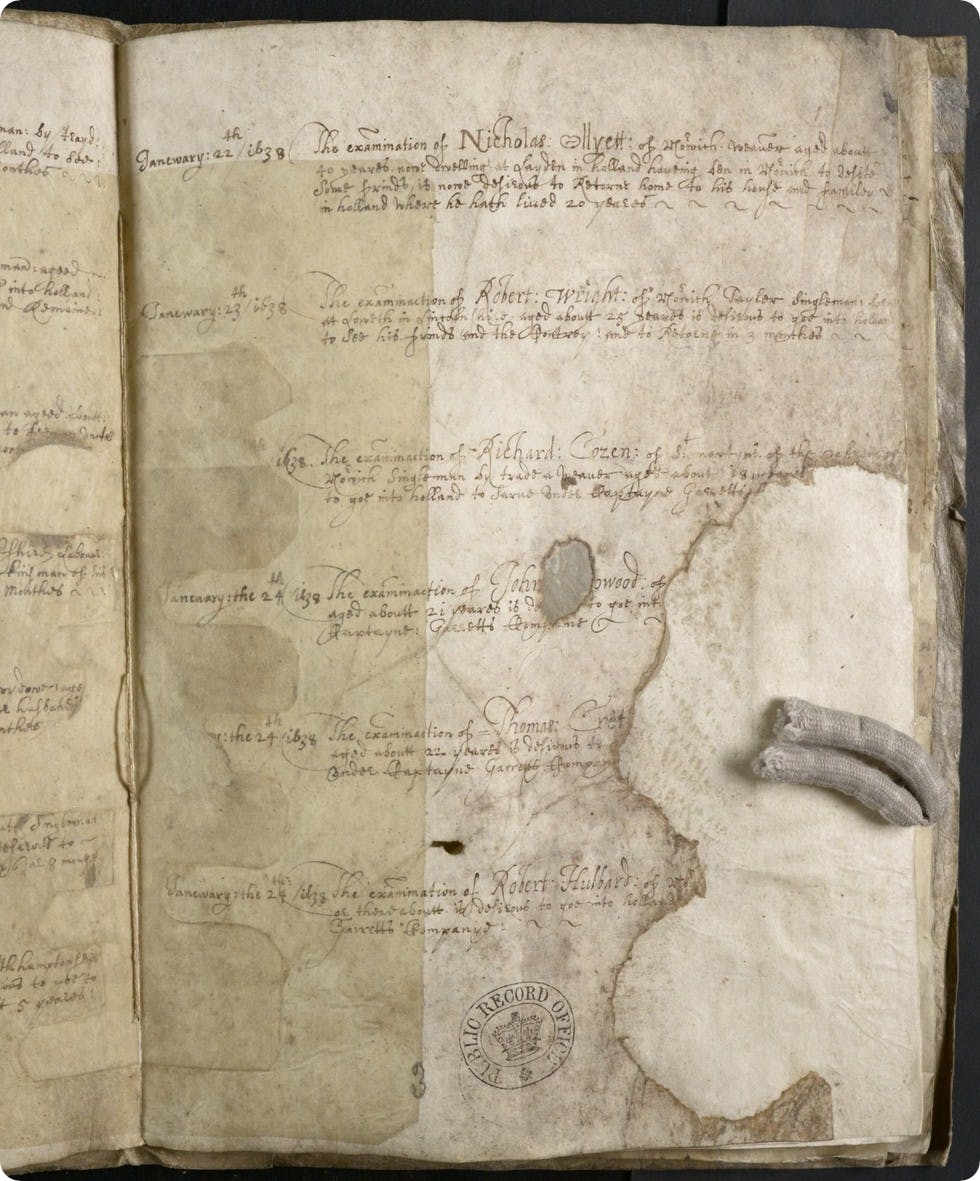 man: by trayd:
lland to see:
onthes
man: aged
into holland:
nd Remaines:
an aged aboutt:
to see
shire Labour:
kinsman of his
Monthes
r husband
nthes
Singleman
desirous to
6 or 9 month
thhamptonshire
ious to goe to
t 5 yeares:
Janewary: 22th / 1638 The examination of Nicholas: Ollyett: of Norwich. Weaver aged aboutt
40 yeares now dwelling at Layden in holland haveing ben in Norwich to desire
some frinds, is nowe desirous to Retorne home to his house and Famyley
in holland where he hath lived 20 yeares
Janewary: 23th / 1638 The examination of Robert: Wright: of Norwich Tayler Singleman:
at Loweth in Lincolnshire: aged about 25 yeares is desirous to goe into hollan
to See his frinds and the Contrey: and to Retorne in 3 monthes
1638. The examination of Richard: Cozen: of St martyns of the
Norwich Singleman by trade a weaver aged about 18 yeares
to goe into holland to sarve under Kaptayne Garretts
Janewary: the 24th / 1638 The examination of John wood: of
aged aboutt 21 yeares is de to goe int
Kaptayne: Garretts Kompanie
y: the 24th / 1638 The examination of Thomas:
aged aboutt 22 yeares is desirous to
under Kaptayne Garretts Kompan
Janewary: the 24th / 1638 The examination of Robert: Hubbard: of
or there aboutt is desirous to goe into holland
Garretts Kompanye:
PUBLIC RECORD OFFICE